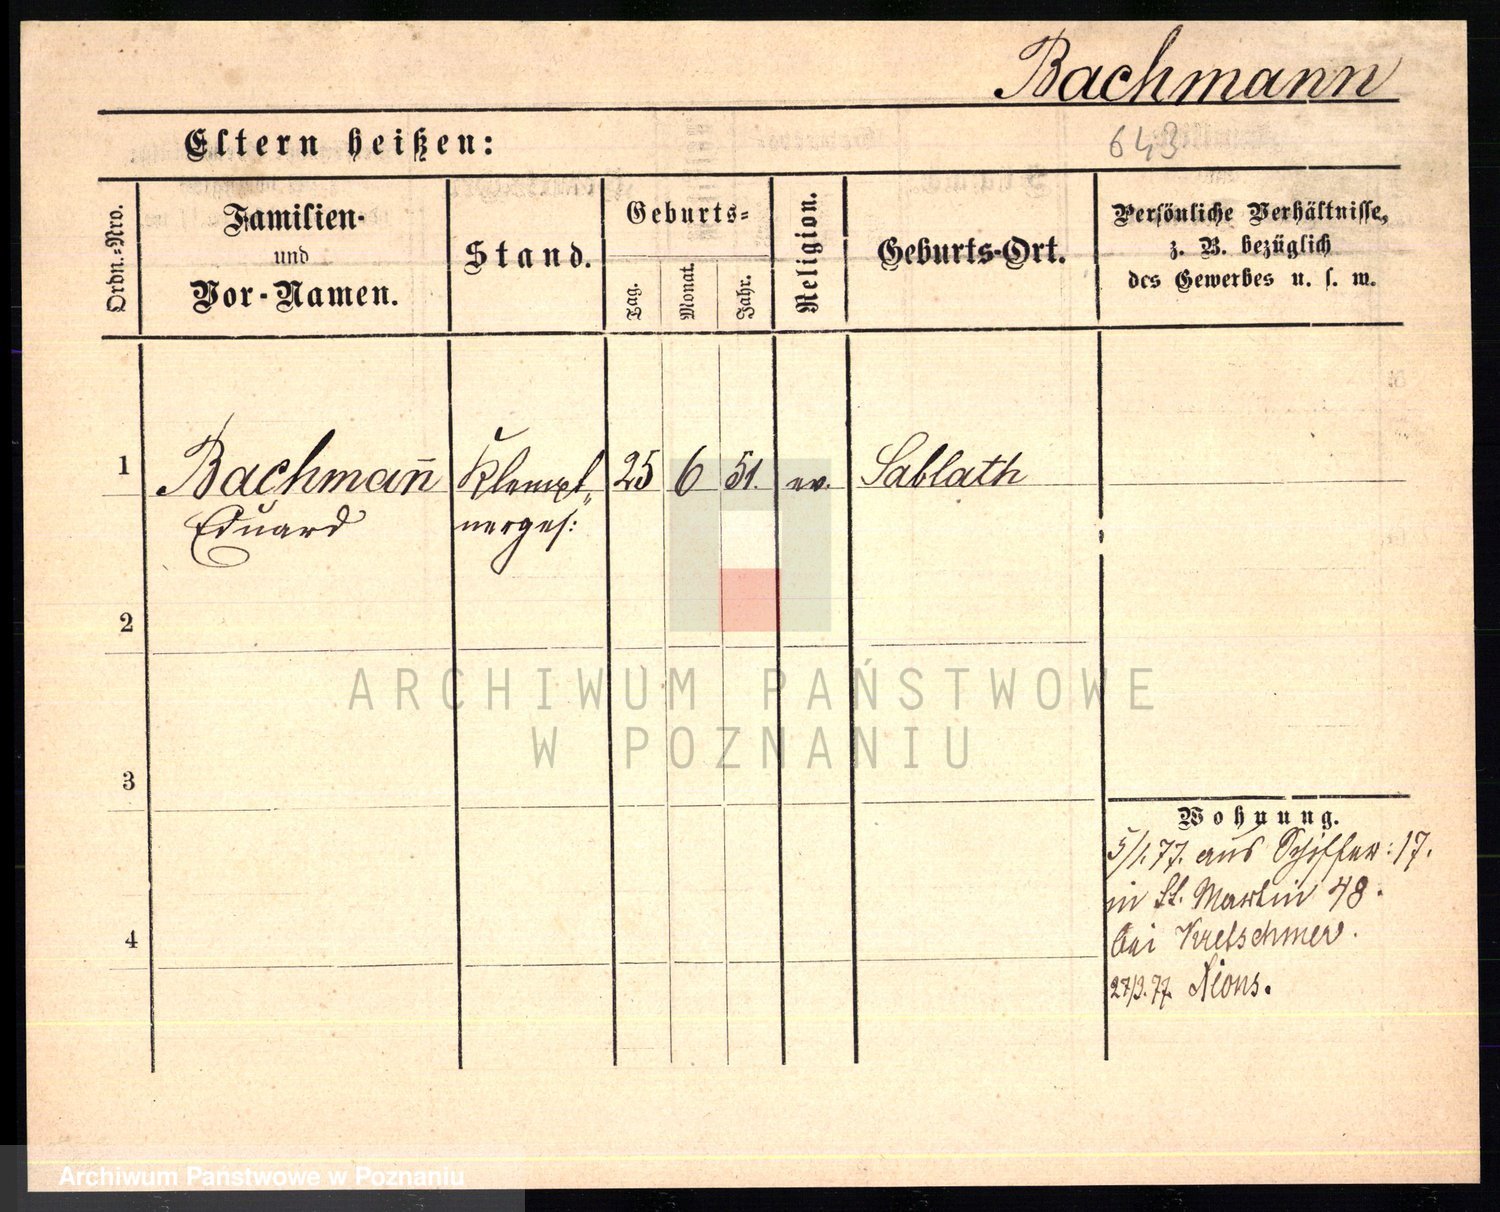 Bachmann
Eltern heißen:
643
Ordn.=Nro.
Familien-
und
Vor-Namen.
Stand.
Geburts=
Tag.
Monat.
Jahr.
Religion.
Geburts-Ort.
Persönliche Verhältnisse,
z. B. bezüglich
des Gewerbes u. s. w.
1
Bachmañ
Eduard
Klempt„
nerges:
25
6
51.
ev.
Sablath
2
3
4
Wohnung.
5/1.77. aus Schiffer: 17.
in St. Martin 48.
bei Kretschmer.
27/3.77.
ARCHIWUM PAŃSTWOWE
W POZNANIU
Archiwum Państwowe w Poznaniu